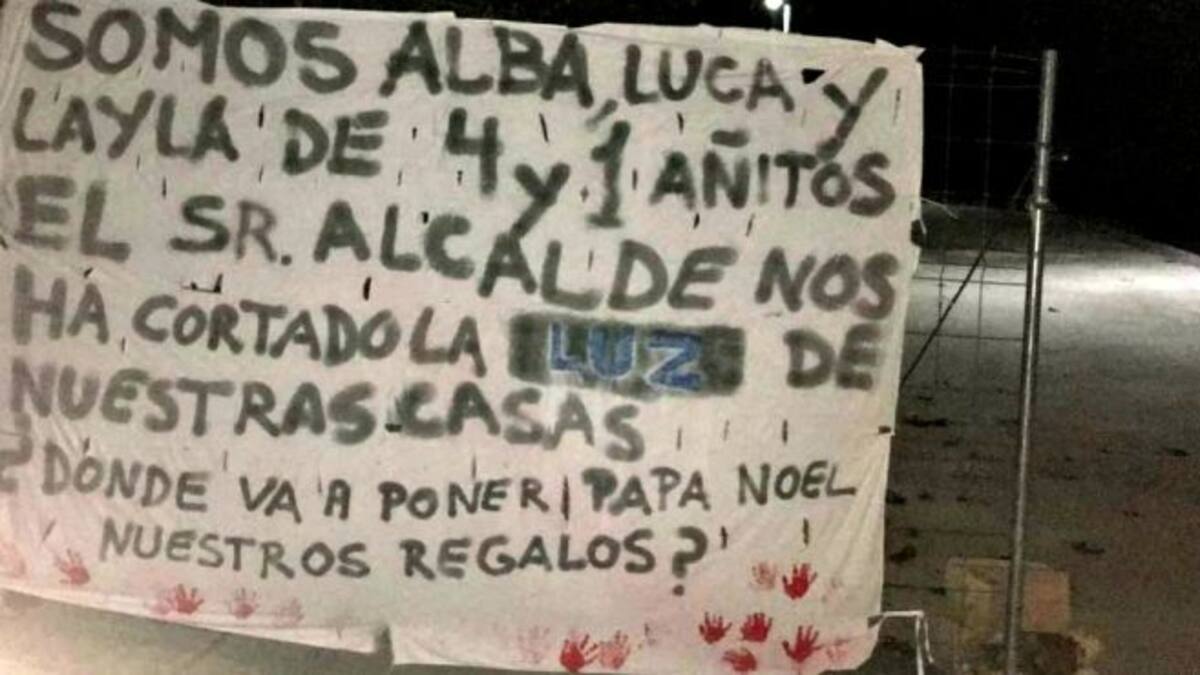 SOMOS ALBA, LUCA Y
LAYLA DE 4 Y 1 AÑITOS
EL SR. ALCALDE NOS
HA CORTADO LA LUZ DE
NUESTRAS CASAS
¿DONDE VA A PONER PAPA NOEL
NUESTROS REGALOS?